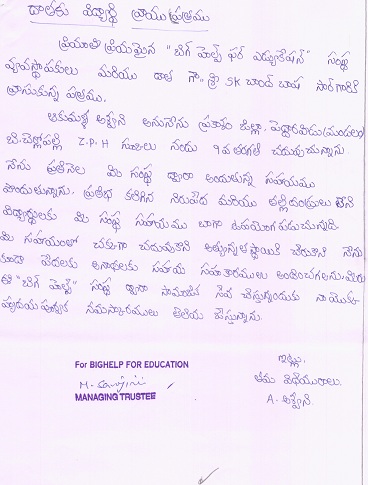 దాతకు విద్యార్థి వ్రాయు పత్రము
ప్రియాతి ప్రియమైన "బిగ్ హెల్ప్ ఫర్ ఎడ్యుకేషన్" సంస్థ
వ్యవస్థాపకులు మరియు దాత గౌ. శ్రీ SK చాంద్ బాషా సార్ గారికి
వ్రాసుకున్న పత్రము.
ఆకుమళ్ల అశ్విని అనునేను ప్రకాశం జిల్లా, పెద్దారవీడు (మండలం)
బి.చెర్లోపల్లి Z.P.H స్కూలు నందు 9వ తరగతి చదువుచున్నాను
నేను ప్రతినెల మీ సంస్థ ద్వారా అందుతున్న సహాయము
పొందుతున్నాను. ప్రతిభ కలిగిన నిరుపేద మరియు తల్లిదండ్రులు లేని
విద్యార్థులకు మీ సంస్థ సహాయము బాగా ఉపయోగపడుచున్నది.
మీ సహాయంలో చక్కగా చదువుకొని అత్యున్నత స్థాయికి చేరుకొని నేను
కూడా పేదలకు అనాథలకు సహాయ సహకారములు అందించగలను. మీరు
ఈ "బిగ్ హెల్ప్" సంస్థ ద్వారా సామాజిక సేవ చేస్తున్నందుకు నా యొక్క
హృదయ పూర్వక నమస్కారములు తెలియ చేస్తున్నాను.
ఇట్లు,
తమ విధేయురాలు.
A. అశ్విని.
For BIGHELP FOR EDUCATION
MANAGING TRUSTEE